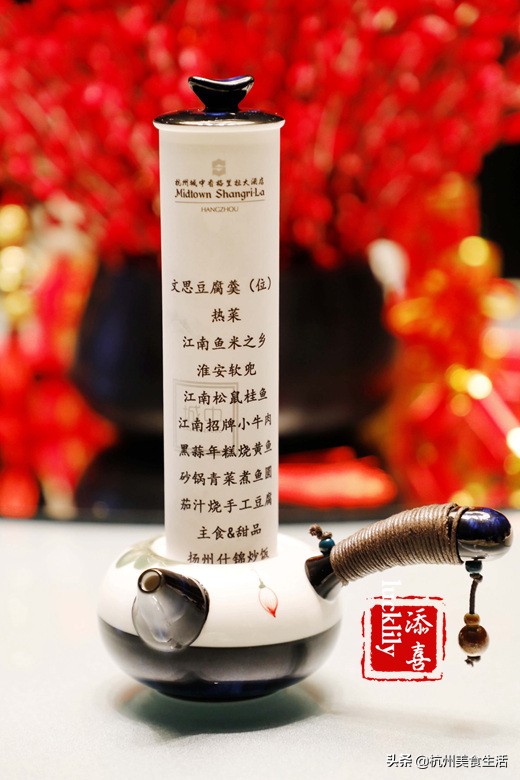 杭州城中香格里拉大酒店
Midtown Shangri-La
HANGZHOU
文思豆腐羹（位）
热菜
江南鱼米之乡
淮安软兜
江南松鼠桂鱼
江南招牌小牛肉
黑蒜年糕烧黄鱼
砂锅青菜煮鱼圆
茄汁烧手工豆腐
主食&甜品
扬州什锦炒饭
lucklily
添喜
头条 @杭州美食生活